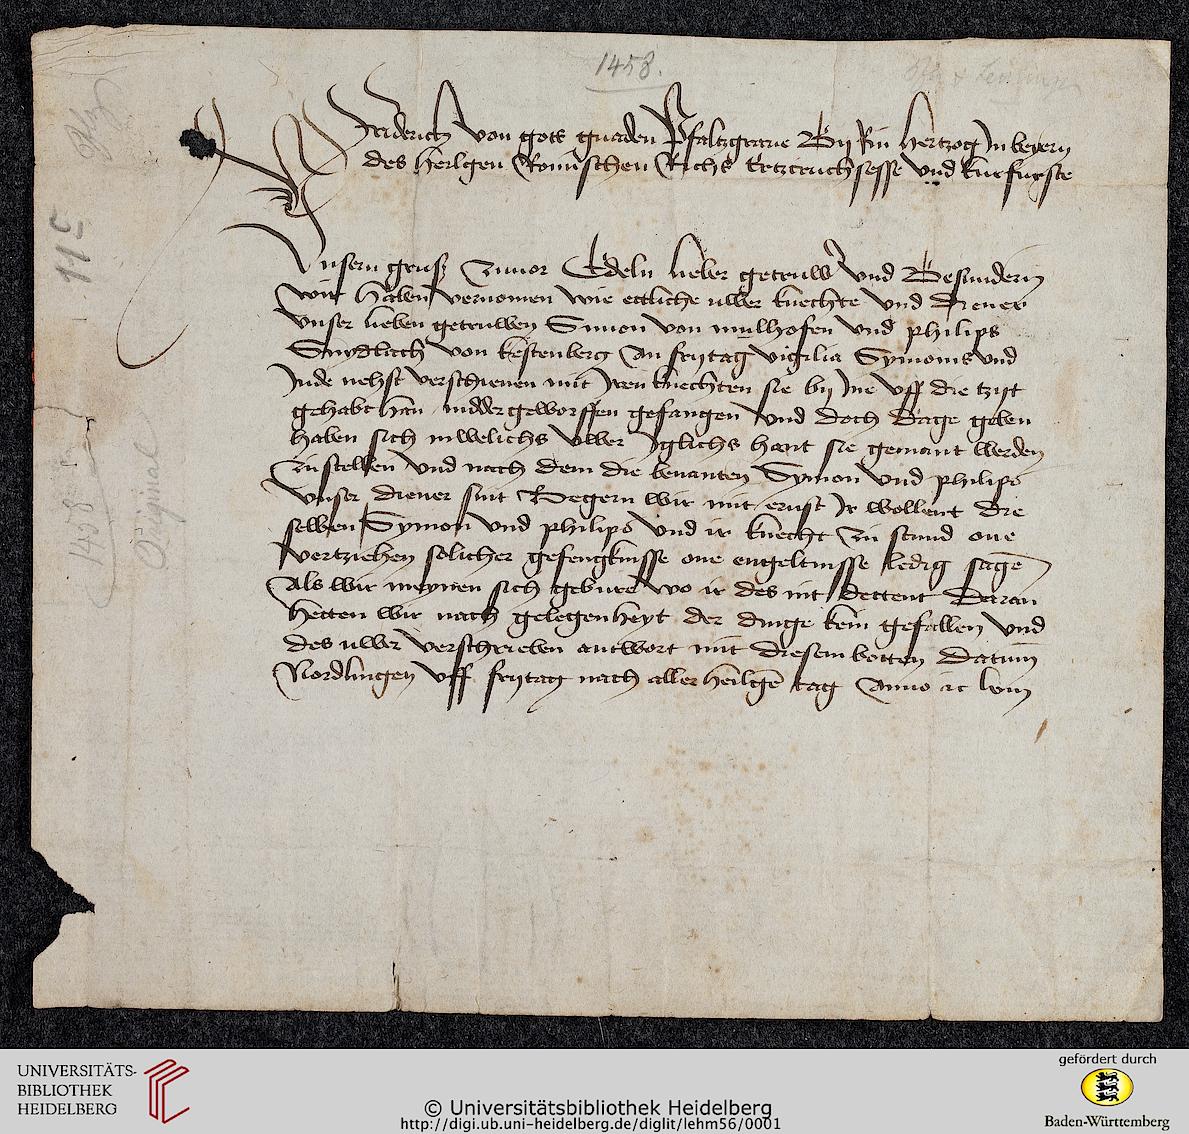 1458.
Friderich von gots gnaden Pfaltzgraue By Rin hertzog In beyern
des heilgen Romischen Richs Ertztruchsesse vnd kurfurste
Vnsern gruß zuuor Edeln lieber getruwer vnd Besundern
wir haben vernomen wie ettliche uwer knechte vnd diener
vnser lieben getruwen Simon von mulhofen vnd philips
Snydlach von kestenberg An frytag vigilia Symonis vnd
Jude nehst verschienen mit Iren knechten sie by Ine vff die tzijt
gehabt han nidder geworffen gefangen vnd doch dage geben
haben sich in welichs uwer Iglichs hant sie gemant werden
zu stellen vnd nach dem die benanten Symon vnd philips
vnser diener sint Begern wir mit ernst Ir wollent die
selben Symon vnd philips vnd ir knecht zu stund one
vertziehen solicher gefengknisse one engeltnisse ledig sagen
Als wir meynen sich gebure wo ir des nit dettent Daran
Hetten wir nach gelegenheyt der dinge kein gefallen vnd
des uwer verschrieben antwort mit diesem botten Datum
Nordlingen vff frytag nach aller heilgen tag Anno ꝛc lviij
Pfalz
11c
1458
Original
UNIVERSITÄTS-
BIBLIOTHEK
HEIDELBERG
© Universitätsbibliothek Heidelberg
http://digi.ub.uni-heidelberg.de/diglit/lehm56/0001
gefördert durch
Baden-Württemberg